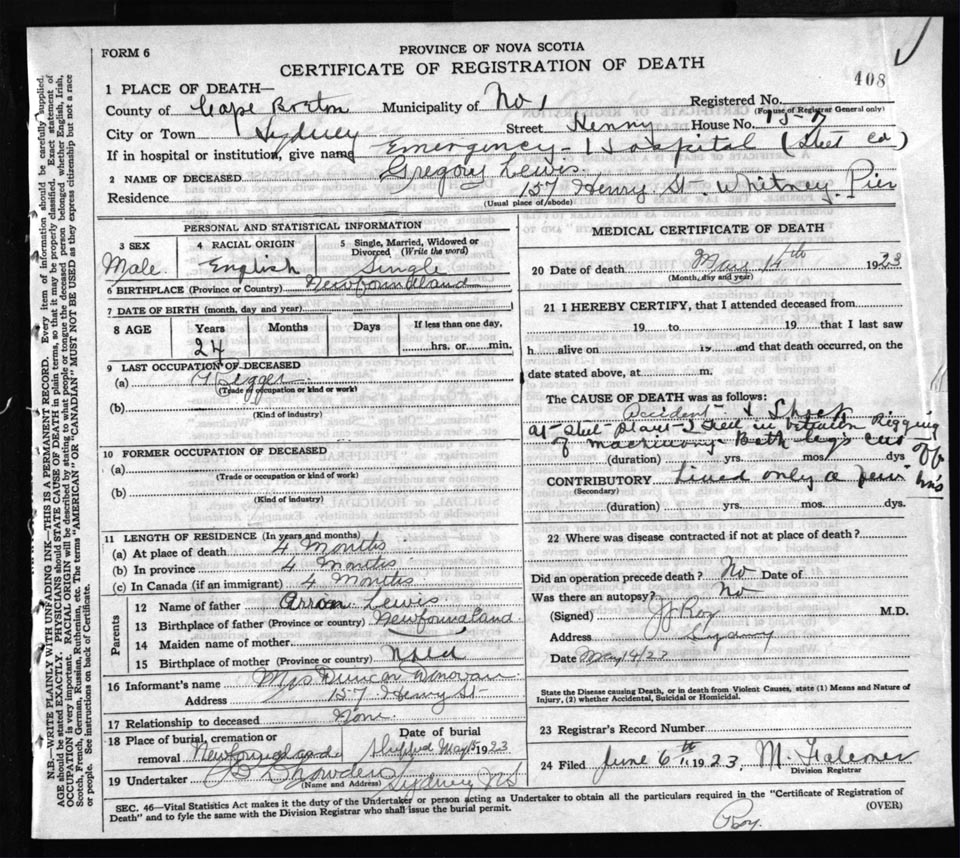 FORM 6
PROVINCE OF NOVA SCOTIA
CERTIFICATE OF REGISTRATION OF DEATH
408
1 PLACE OF DEATH—
County of Cape Breton Municipality of No 1 Registered No.
(For use of Registrar General only)
City or Town Sydney Street Henry House No. 157
If in hospital or institution, give name Emergency Hospital (Steel Co)
2 NAME OF DECEASED Gregory Lewis
Residence 157 Henry St. Whitney Pier
(Usual place of abode)
PERSONAL AND STATISTICAL INFORMATION
3 SEX 4 RACIAL ORIGIN 5 Single, Married, Widowed or Divorced (Write the word)
Male English Single
6 BIRTHPLACE (Province or Country) Newfoundland
7 DATE OF BIRTH (month, day and year)
8 AGE Years Months Days If less than one day,
24 hrs. or min.
9 LAST OCCUPATION OF DECEASED
(a)
(Trade or occupation or kind or work)
(b)
(Kind of industry)
10 FORMER OCCUPATION OF DECEASED
(a)
(Trade or occupation or kind or work)
(b)
(Kind of industry)
11 LENGTH OF RESIDENCE (In years and months)
(a) At place of death 4 Months
(b) In province 4 Months
(c) In Canada (if an immigrant) 4 Months
Parents
12 Name of father Arron Lewis
13 Birthplace of father (Province or country) Newfoundland
14 Maiden name of mother
15 Birthplace of mother (Province or country) Nfld
16 Informant's name Mrs Duncan Donovan
Address 157 Henry St
17 Relationship to deceased None
18 Place of burial, cremation or removal Newfoundland
Date of burial Shipped May 15 1923
19 Undertaker Sydney NS
(Name and Address)
MEDICAL CERTIFICATE OF DEATH
20 Date of death May 14th 1923
(Month, day and year)
21 I HEREBY CERTIFY, that I attended deceased from
19 to 19 that I last saw
h alive on 19 and that death occurred, on
date stated above, at m.
The CAUSE OF DEATH was as follows:
Accident & Shock
at Steel Plant
of machinery Both legs cut off
(duration) yrs. mos. dys
CONTRIBUTORY Lived only a few hrs
(Secondary)
(duration) yrs. mos. dys.
22 Where was disease contracted if not at place of death?
Did an operation precede death? No Date of
Was there an autopsy? No
(Signed) JJ Roy M.D.
Address Sydney
Date May 14/23
State the Disease causing Death, or in death from Violent Causes, state (1) Means and Nature of
Injury, (2) whether Accidental, Suicidal or Homicidal.
23 Registrar's Record Number
24 Filed June 6th 1923 M. Falconer
Division Registrar
SEC. 46—Vital Statistics Act makes it the duty of the Undertaker or person acting as Undertaker to obtain all the particulars required in the "Certificate of Registration of
Death" and to fyle the same with the Division Registrar who shall issue the burial permit. (OVER)
Roy.
N.B.—WRITE PLAINLY WITH UNFADING INK—THIS IS A PERMANENT RECORD. Every item of information should be carefully supplied.
AGE should be stated EXACTLY. PHYSICIANS should STATE CAUSE OF DEATH in plain terms, so that it may be properly classified. Exact statement of
OCCUPATION is very important. RACIAL ORIGIN will be described by stating to what people or tongue the deceased person belonged whether English, Irish,
Scotch, French, German, Russian, Ruthenian, etc. The terms "AMERICAN" OR "CANADIAN" MUST NOT BE USED as they express citizenship but not a race
or people. See instructions on back of Certificate.